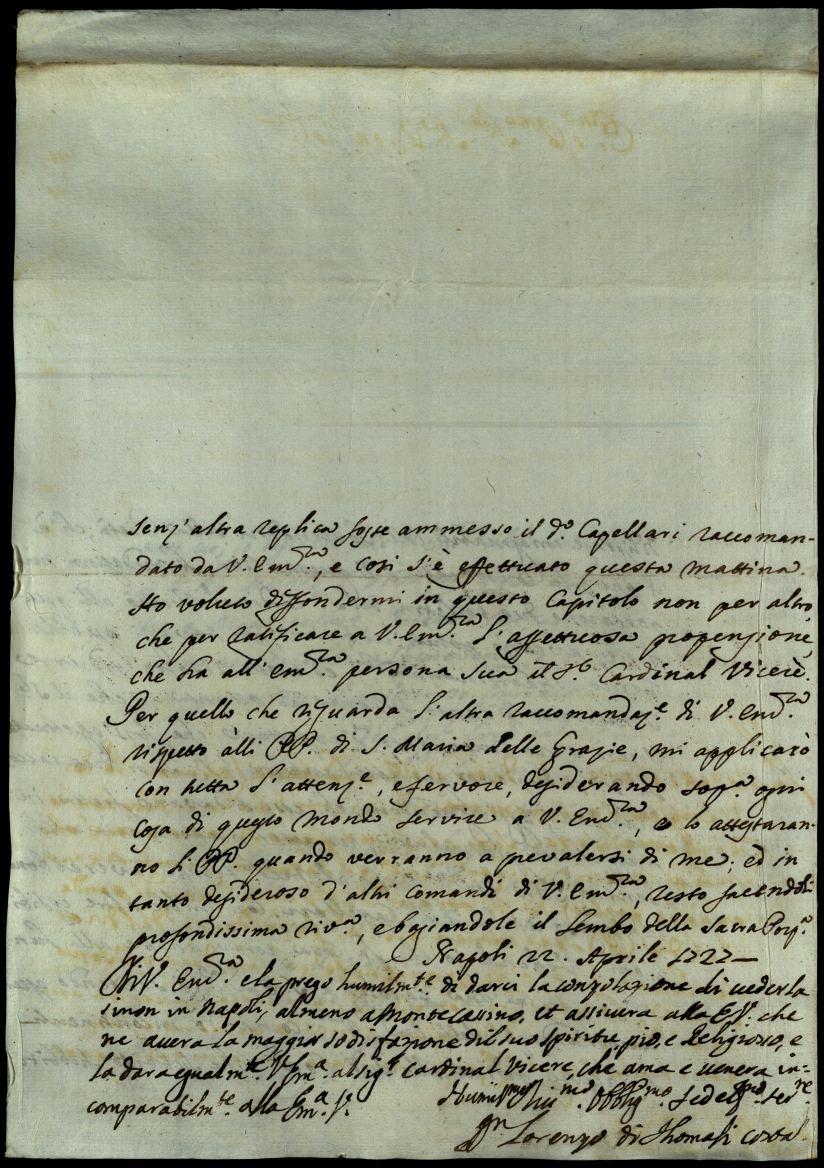 senz'altra replica fosse ammesso il d.º Capellari raccoman-
dato da V. Em.za, e così s'è effettuato questa mattina.
Ho voluto diffondermi in questo Capitolo non per altro,
che per ratificare a V. Em.za l'affettuosa propenzione,
che ha all'Em.za persona sua il Cardinal Vicerè.
Per quello che riguarda l'altra raccomandaz.e di V. Em.za
rispetto àlli PP. di S. Maria delle Grazie, mi applicarò
con tutta l'attenz.e, e fervore, desiderando sop.a ogni
cosa di questo mondo servire a V. Em.za, e lo attestaran-
no li PP. quando verranno a prevalersi di me; ed in
tanto desideroso d'altri comandi di V. Em.za, resto facendoli
profondissima riv.a, e baciandole il lembo della Sacra Porp.a
Napoli 22. Aprile 1722
Di V. Em.za e la prego humilm.te di darci la consolazione di vederla
sinon in Napoli, almeno a Montecassino, et assicura alla E.V. che
ne avera la maggior sodisfazione del suo spirito pio, e Religioso, e
la dara egualm.te al sig.r Cardinal Vicere, che ama e venera in-
comparabilm.te alla Em.a V.
Humil.mo Obblig.mo Fedel.mo Ser.re
Dn Lorenzo di Thomasi